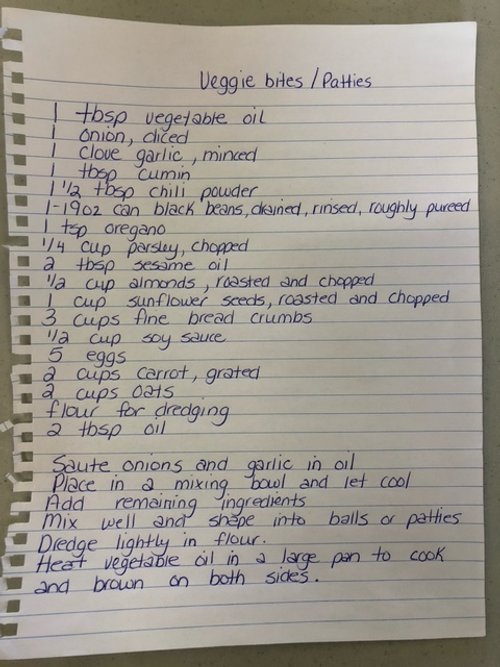 Veggie bites / Patties
1 tbsp vegetable oil
1 onion, diced
1 clove garlic, minced
1 tbsp cumin
1 1/2 tbsp chili powder
1-19oz can black beans, drained, rinsed, roughly pureed
1 tsp oregano
1/4 cup parsley, chopped
2 tbsp sesame oil
1/2 cup almonds, roasted and chopped
1 cup sunflower seeds, roasted and chopped
3 cups fine bread crumbs
1/2 cup soy sauce
5 eggs
2 cups carrot, grated
2 cups oats
flour for dredging
2 tbsp oil
Saute onions and garlic in oil
Place in a mixing bowl and let cool
Add remaining ingredients
Mix well and shape into balls or patties
Dredge lightly in flour.
Heat vegetable oil in a large pan to cook
and brown on both sides.